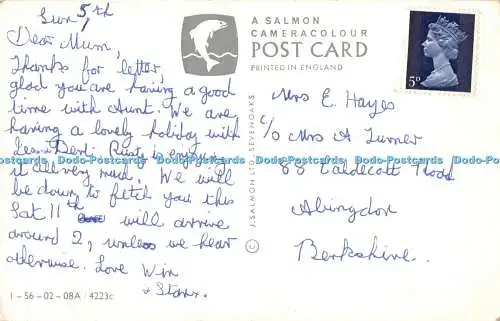 Sun 5th
Dear Mum,
Thanks for letter,
glad you are having a good
time with Aunt. We are
having a lovely holiday with
Rusty is enjoying
it all very much. We will
be down to fetch you this
Sat 11th will arrive
around 2, unless we hear
otherwise. Love Win
+ Stan.
1-56-02-08A / 4223c
A SALMON
CAMERACOLOUR
POST CARD
PRINTED IN ENGLAND
J. SALMON LTD., SEVENOAKS
©
5D
Mrs E. Hayes
c/o Mrs A Turner
88 Caldecott Road
Abingdon
Berkshire.
Dodo-Postcards Dodo-Postcards Dodo-Postcards Dodo-Postcards Dodo-Postcards